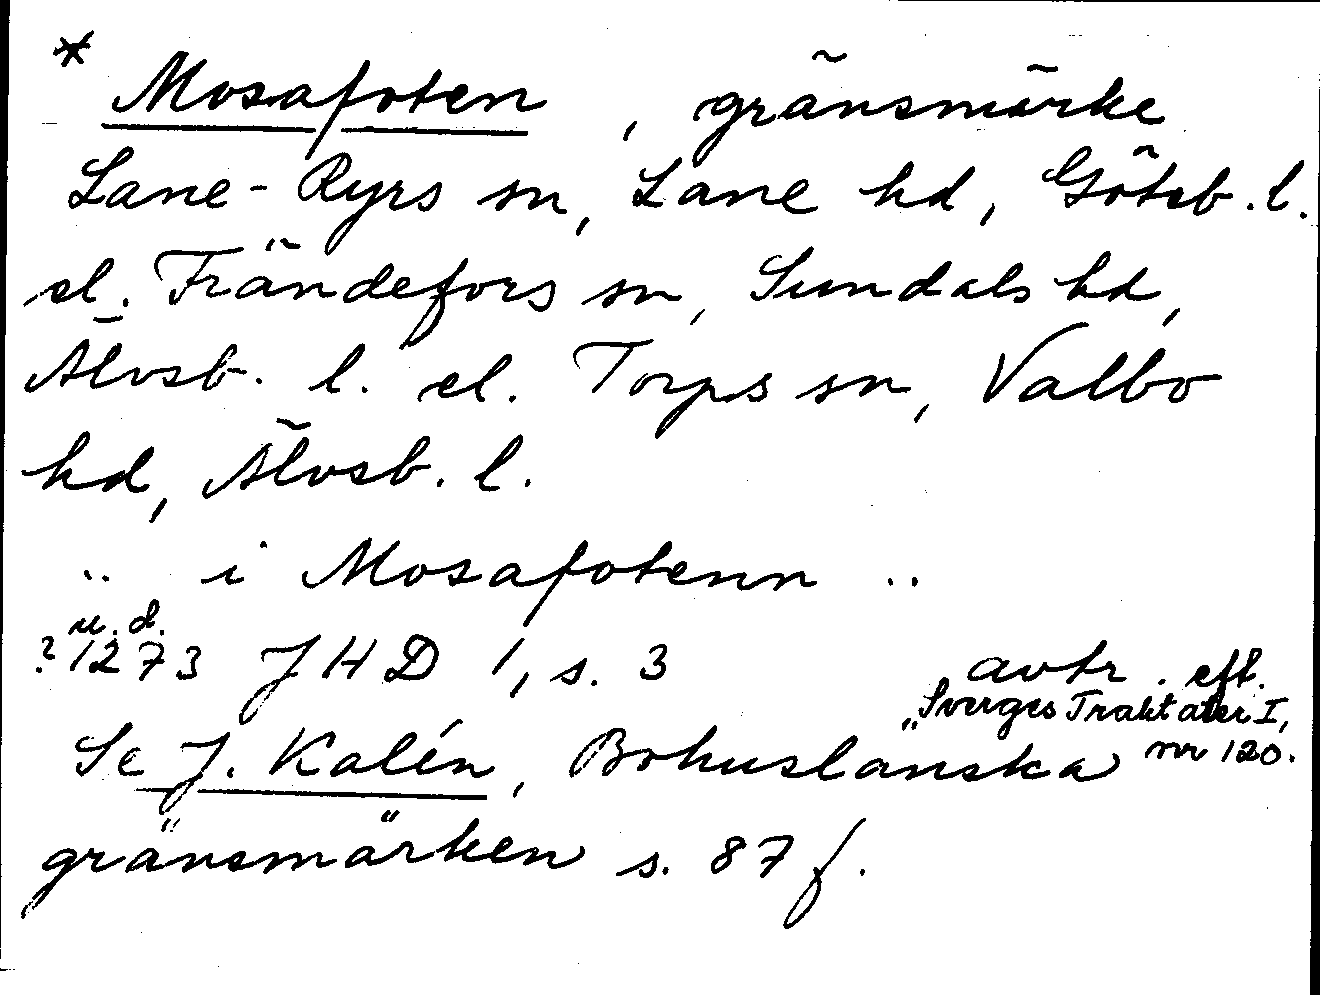 * Mosafoten, gränsmärke
Lane-Ryrs sn, Lane hd, Göteb. l.
el. Frändefors sn, Sundals hd,
Älvsb. l. el. Torps sn, Valbo
hd, Älvsb. l.
.. i Mosafotenn ..
u. d.
? 1273 JHD 1, s. 3 avtr. eft.
"Sverges Traktater I,
nr 120.
Se J. Kalén, Bohuslänska
gränsmärken s. 87 f.